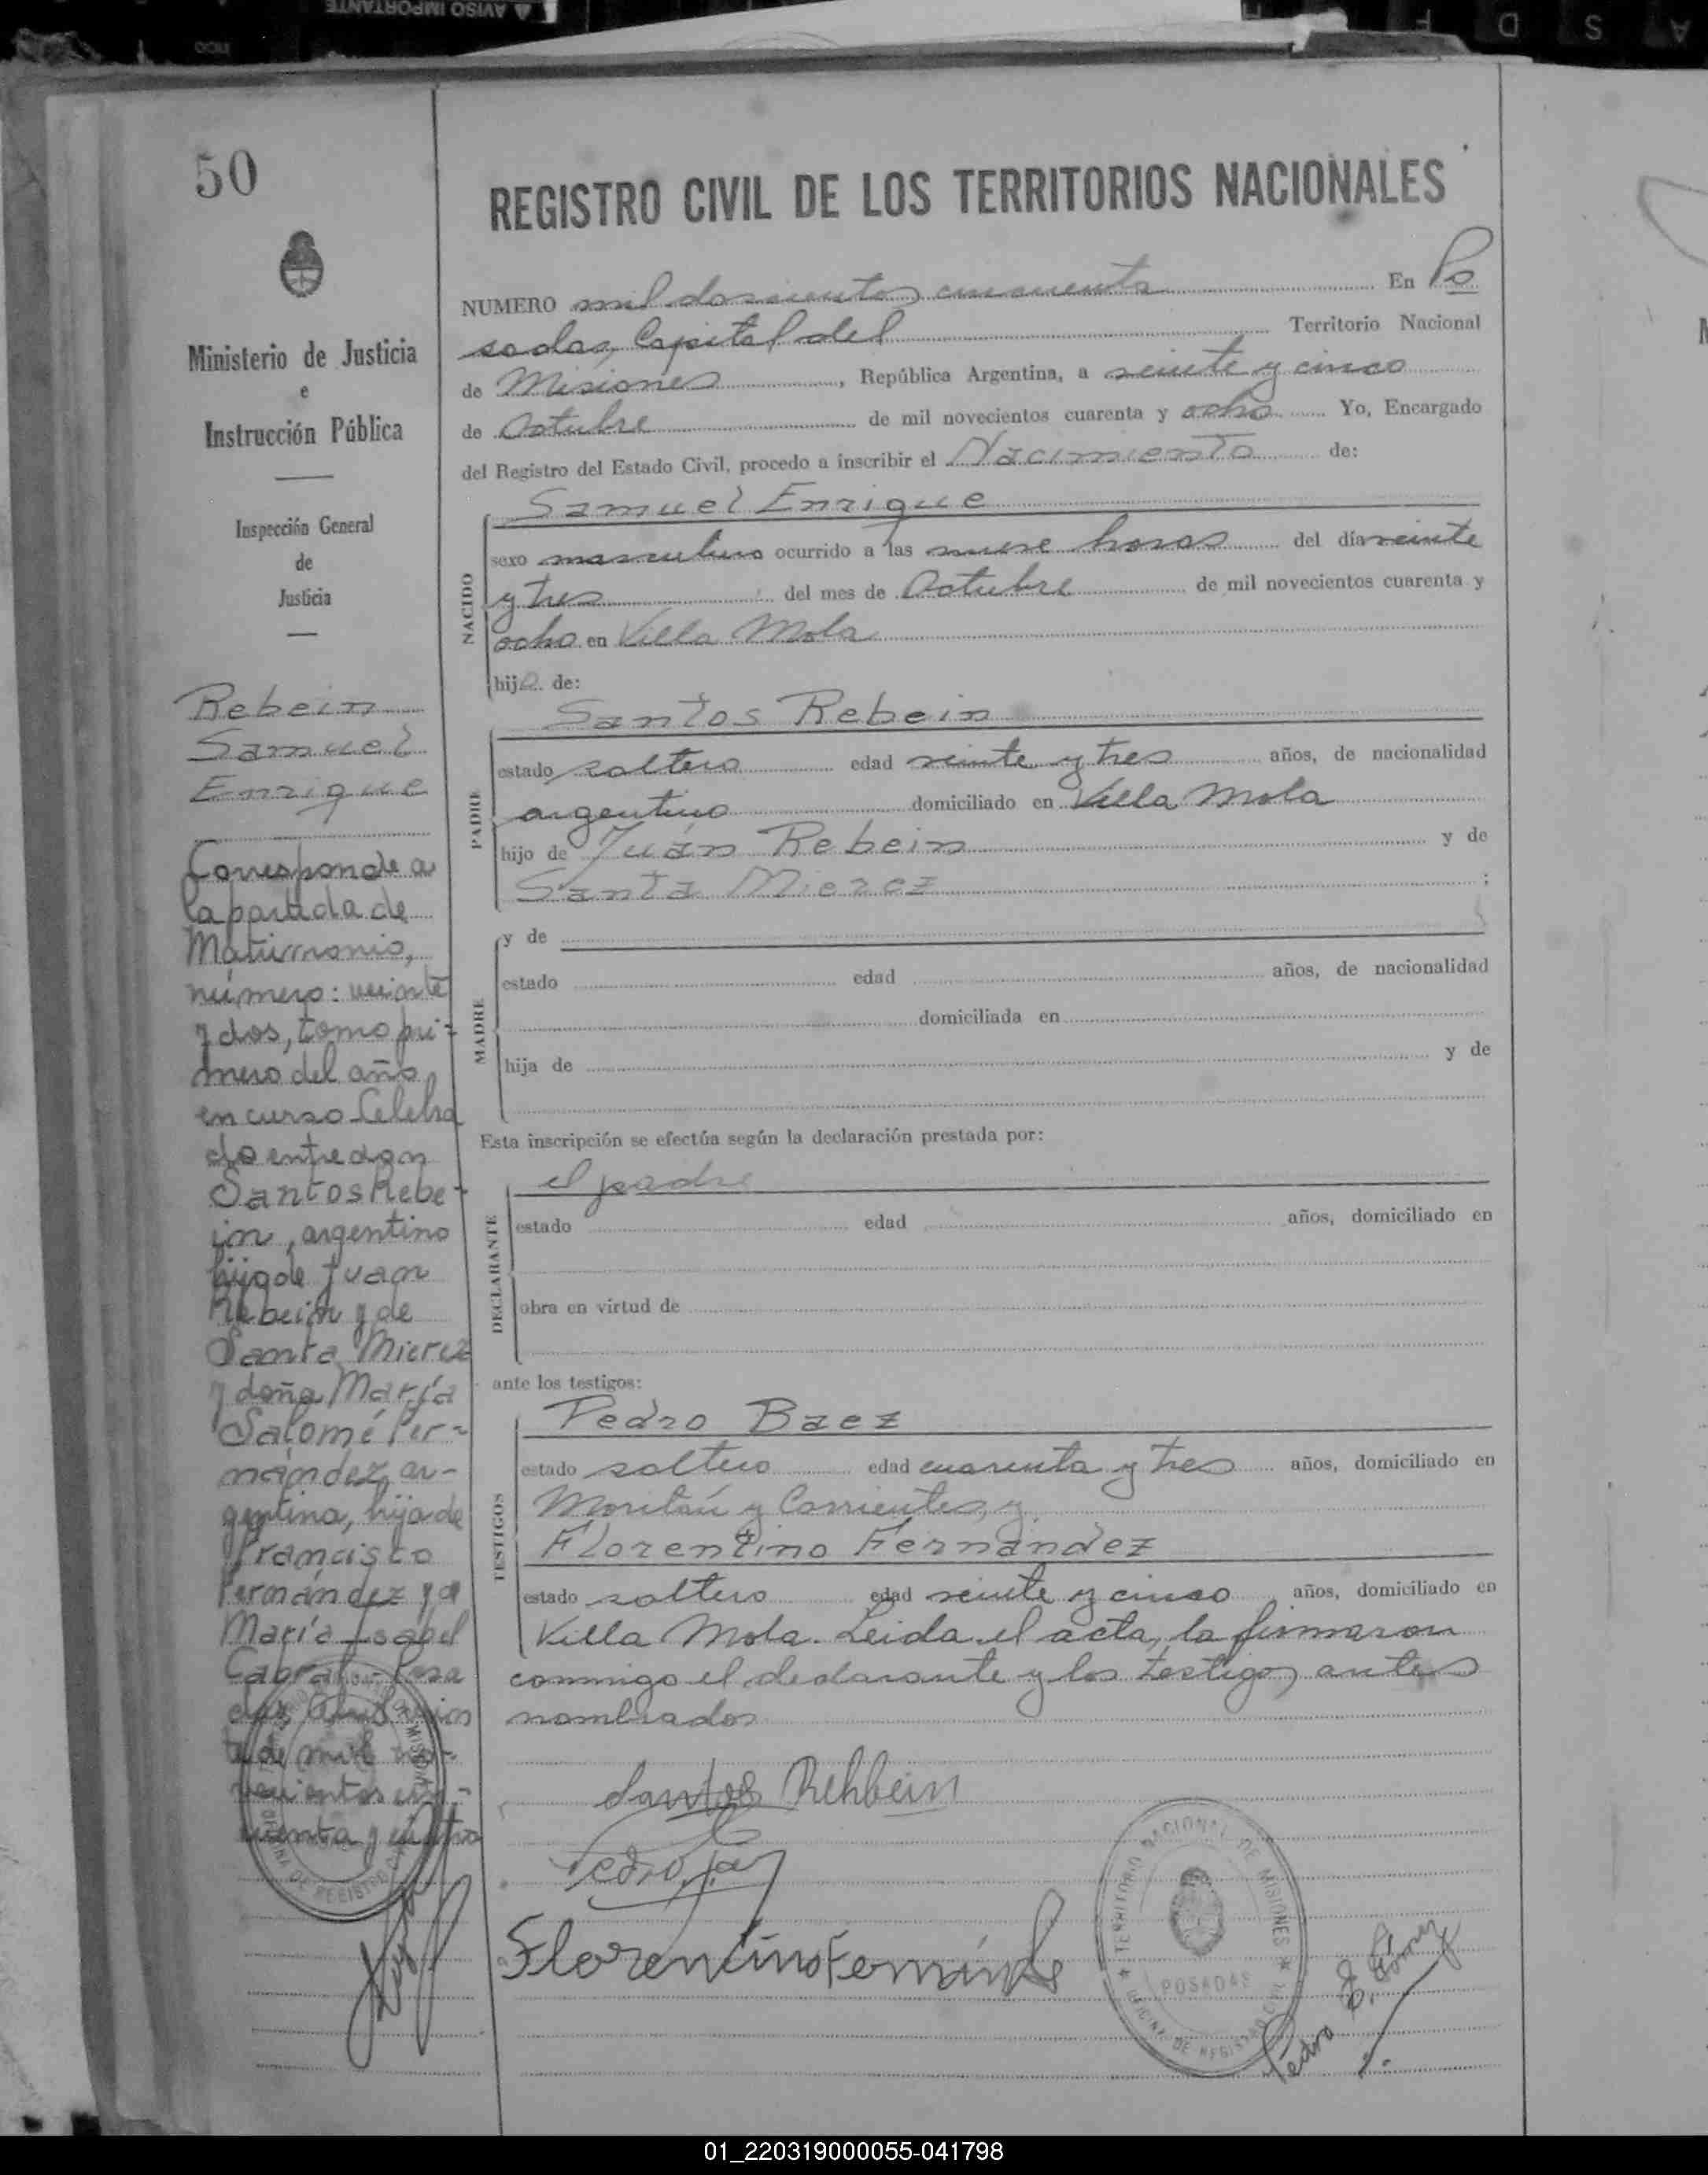 AVISO IMPORTANTE
A S D F H
50
Ministerio de Justicia
e
Instrucción Pública
Inspección General
de
Justicia
Rebein
Samuel
Enrique
Corresponde a
la partida de
Matrimonio,
número: veinte
y dos, tomo pri-
mero del año
en curso Celebra
do entre don
Santos Rebe-
in, argentino
hijo de Juan
Rebein y de
Santa Mierez
y doña María
Salomé Fer-
nández, ar-
gentina, hija de
Francisco
Fernández y de
María Isabel
Cabral.- Posa
das
te de mil no-
vecientos cin-
cuenta y cuatro
REGISTRO CIVIL DE LOS TERRITORIOS NACIONALES
NUMERO mil doscientos cincuenta En Po
sadas, Capital del Territorio Nacional
de Misiones, República Argentina, a veinte y cinco
de Octubre de mil novecientos cuarenta y ocho Yo, Encargado
del Registro del Estado Civil, procedo a inscribir el Nacimiento de:
Samuel Enrique
NACIDO
sexo masculino ocurrido a las nueve horas del día veinte
y tres del mes de Octubre de mil novecientos cuarenta y
ocho en Villa Mola
hijo de:
Santos Rebein
PADRE
estado soltero edad veinte y tres años, de nacionalidad
argentino domiciliado en Villa Mola
hijo de Juán Rebein y de
Santa Mierez ;
MADRE
y de
estado edad años, de nacionalidad
domiciliada en
hija de y de
Esta inscripción se efectúa según la declaración prestada por:
el padre
DECLARANTE
estado edad años, domiciliado en
obra en virtud de
ante los testigos:
Pedro Baez
TESTIGOS
estado soltero edad cuarenta y tres años, domiciliado en
y Corrientes, y
Florentino Fernández
estado soltero edad veinte y cinco años, domiciliado en
Villa Mola. Leida el acta, la firmaron
conmigo el declarante y los testigos antes
nombrados
Santos Rehbein
Florentino Fernández
TERRITORIO NACIONAL DE MISIONES
POSADAS
OFICINA DE REGISTRO CIVIL
Pedro E. Gómez
01_220319000055-041798